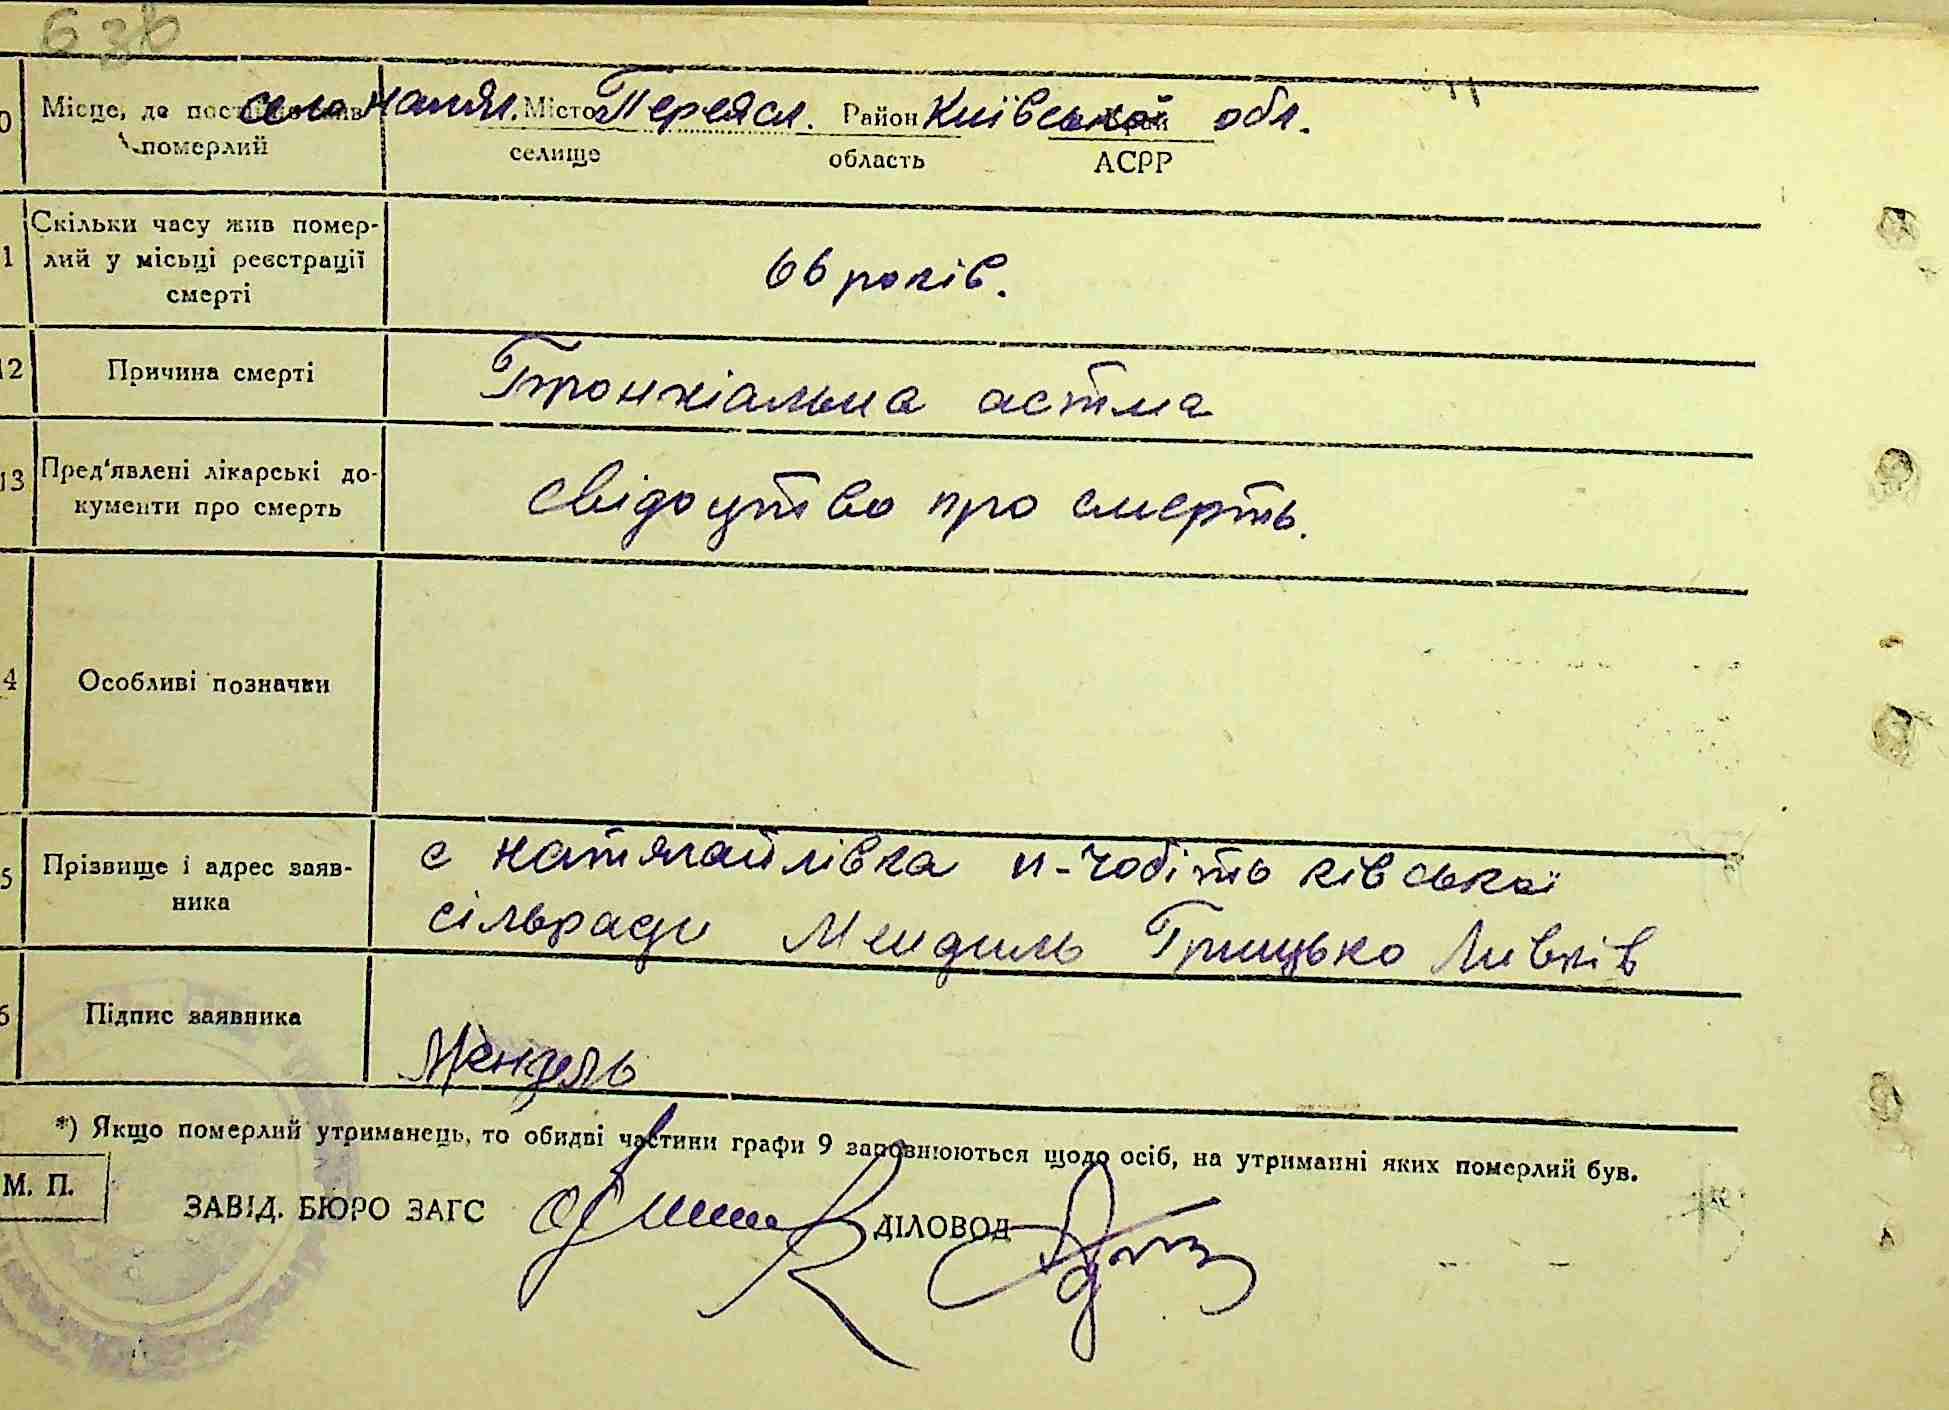 6 зв
0 Місце, де постійно жив село Натял. Місто Переясл. Район Київської обл.
померлий селище область АСРР
1 Скільки часу жив помер-
лий у місьці реєстрації
смерті
66 років.
12 Причина смерті Бронхіальна астма
13 Пред'явлені лікарські до-
кументи про смерть
свідоцтво про смерть.
4 Особливі позначки
5 Прізвище і адрес заяв-
ника
с Натягайлівка п-чобітьківської
сільради Мендиль Грицько Ливків
6 Підпис заявника
Мендель
*) Якщо померлий утриманець, то обидві частини графи 9 заповнюються щодо осіб, на утриманні яких померлий був.
М. П.
ЗАВІД. БЮРО ЗАГС ДІЛОВОД